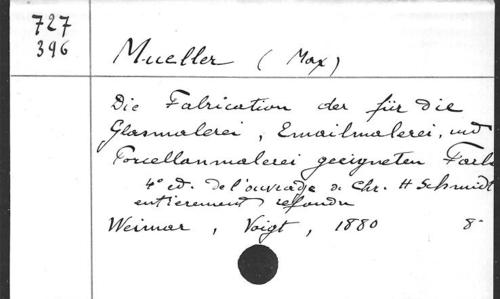 727
396
Mueller (Max)
Die Fabrication der für die
Glasmalerei, Emailmalerei, und
Porcellanmalerei geeigneten Farb
4° ed. de l'ouvrage de Chr. H Schmidt
entierement refondu
Weimar, Voigt, 1880 8°